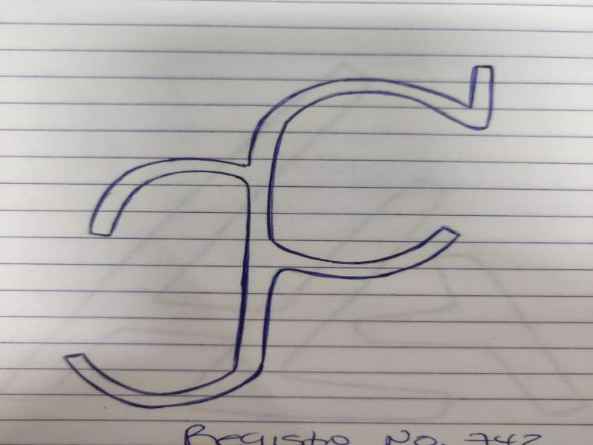 Registo No. 742